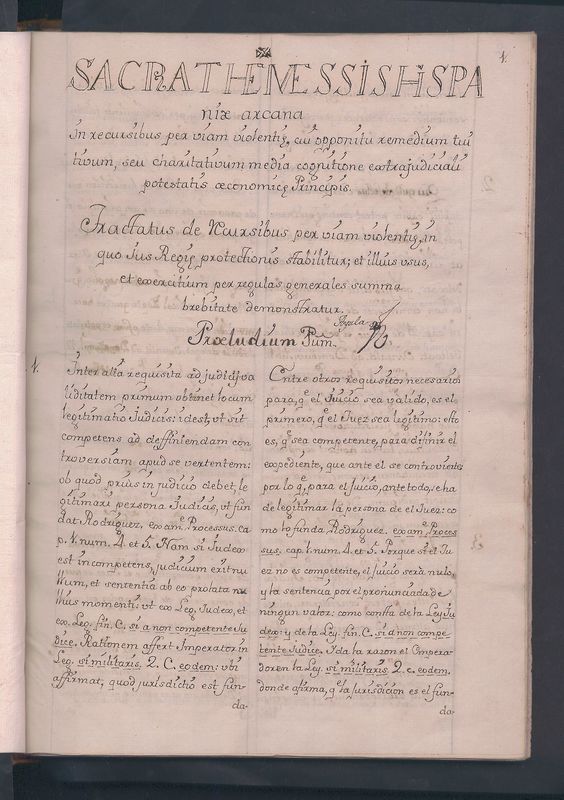 1.
SACRATHEMESSISHSPA
niæ arcana
In recursibus per viam violentię, cui opponitur remedium tui
tivum, seu charitativum media cognitione extrajudiciali
potestatis œconomicę Principis.
Tractatus de Recursibus per viam violentię, in
quo Ius Regię protectionis stabilitur; et illius vsus,
et exercitium per regulas generales summa
brebitate demonstratur.
Præludium Pūm.
1.
Inter alia requisita ad judicij va
liditatem primum obtinet locum
legitimatio Judicis: idest, vt sit
competens ad deffiniendam con
troversiam apud se vertentem:
ob quod priùs in judicio debet, le
gitimari persona Judicis, vt fun
dat: Rodriguez, de exam.e Processus. ca
p. 1. num. 4. et 5. Nam si Judex
est incompetens, judicium erit nu
llum, et sententia ab eo prolata nu
llius momenti: vt ex Leg. Judex, et
ex Leg. fin. C. si a non competente Ju
dice. Rationem affert Imperator in
Leg. si militaris. 2. C. eodem: vbi
affirmat, quod jurisdictio est fun-
da-
Entre otros requisitos necesarios
para, q.e el Juicio sea valido, es el
primero, q.e el Juez sea legitimo: esto
es, q.e sea competente, para difinir el
expediente, que ante èl se controvierte:
por lo q.e, para el juicio, ante todo, se ha
de legitimar la persona de el Juez: co
mo lo funda Rodriguez. exam.e Proces
sus. cap. 1. num. 4. et 5. Porque si el Ju
ez no es competente, el juicio serà nulo,
y la sentencia por el pronunciada de
ningun valor: como consta de la Ley Ju
dex: y de la Ley. fin. C. si à non compe-
tente Judice. I da la razon el Empera-
dor en la Ley. si militaris. 2. c. eodem.
donde afirma, q.e la jurisdicion es el fun-
da-